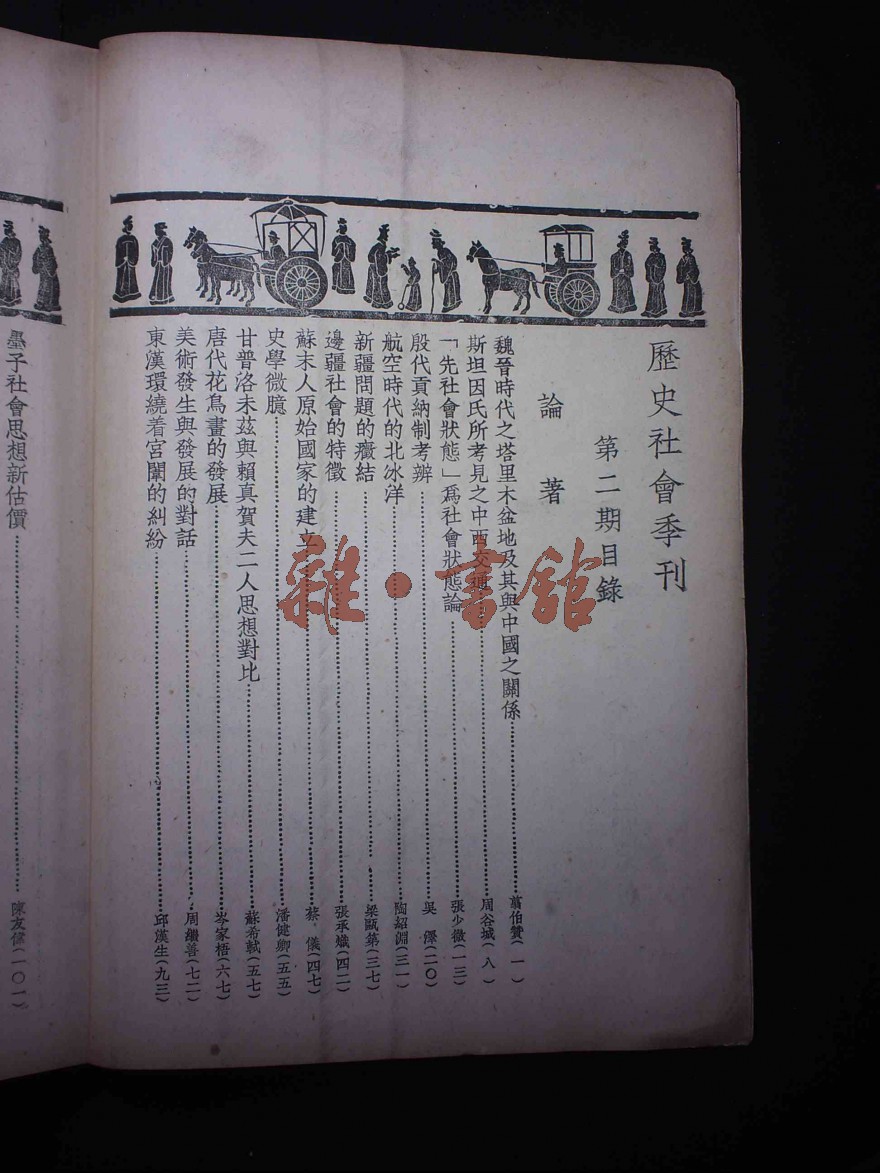 歷史社會季刊
第二期目錄
論著
魏晉時代之塔里木盆地及其與中國之關係……翦伯贊(一)
斯坦因氏所考見之中西交通……周谷城(八)
「先社會狀態」爲社會狀態論……張少微(一三)
殷代貢納制考辨……吳澤(二〇)
航空時代的北冰洋……陶紹淵(三一)
新疆問題的癥結……梁甌第(三七)
邊疆社會的特徵……張承熾(四二)
蘇末人原始國家的建立……蔡儀(四七)
史學微臆……潘健卿(五五)
甘普洛未茲與賴真賀夫二人思想對比……蘇希軾(五七)
唐代花鳥畫的發展……岑家梧(六七)
美術發生與發展的對話……周繼善(七二)
東漢環繞着宮闈的糾紛……邱漢生(九三)
墨子社會思想新估價……陳友偉(一〇一)
雜·書館